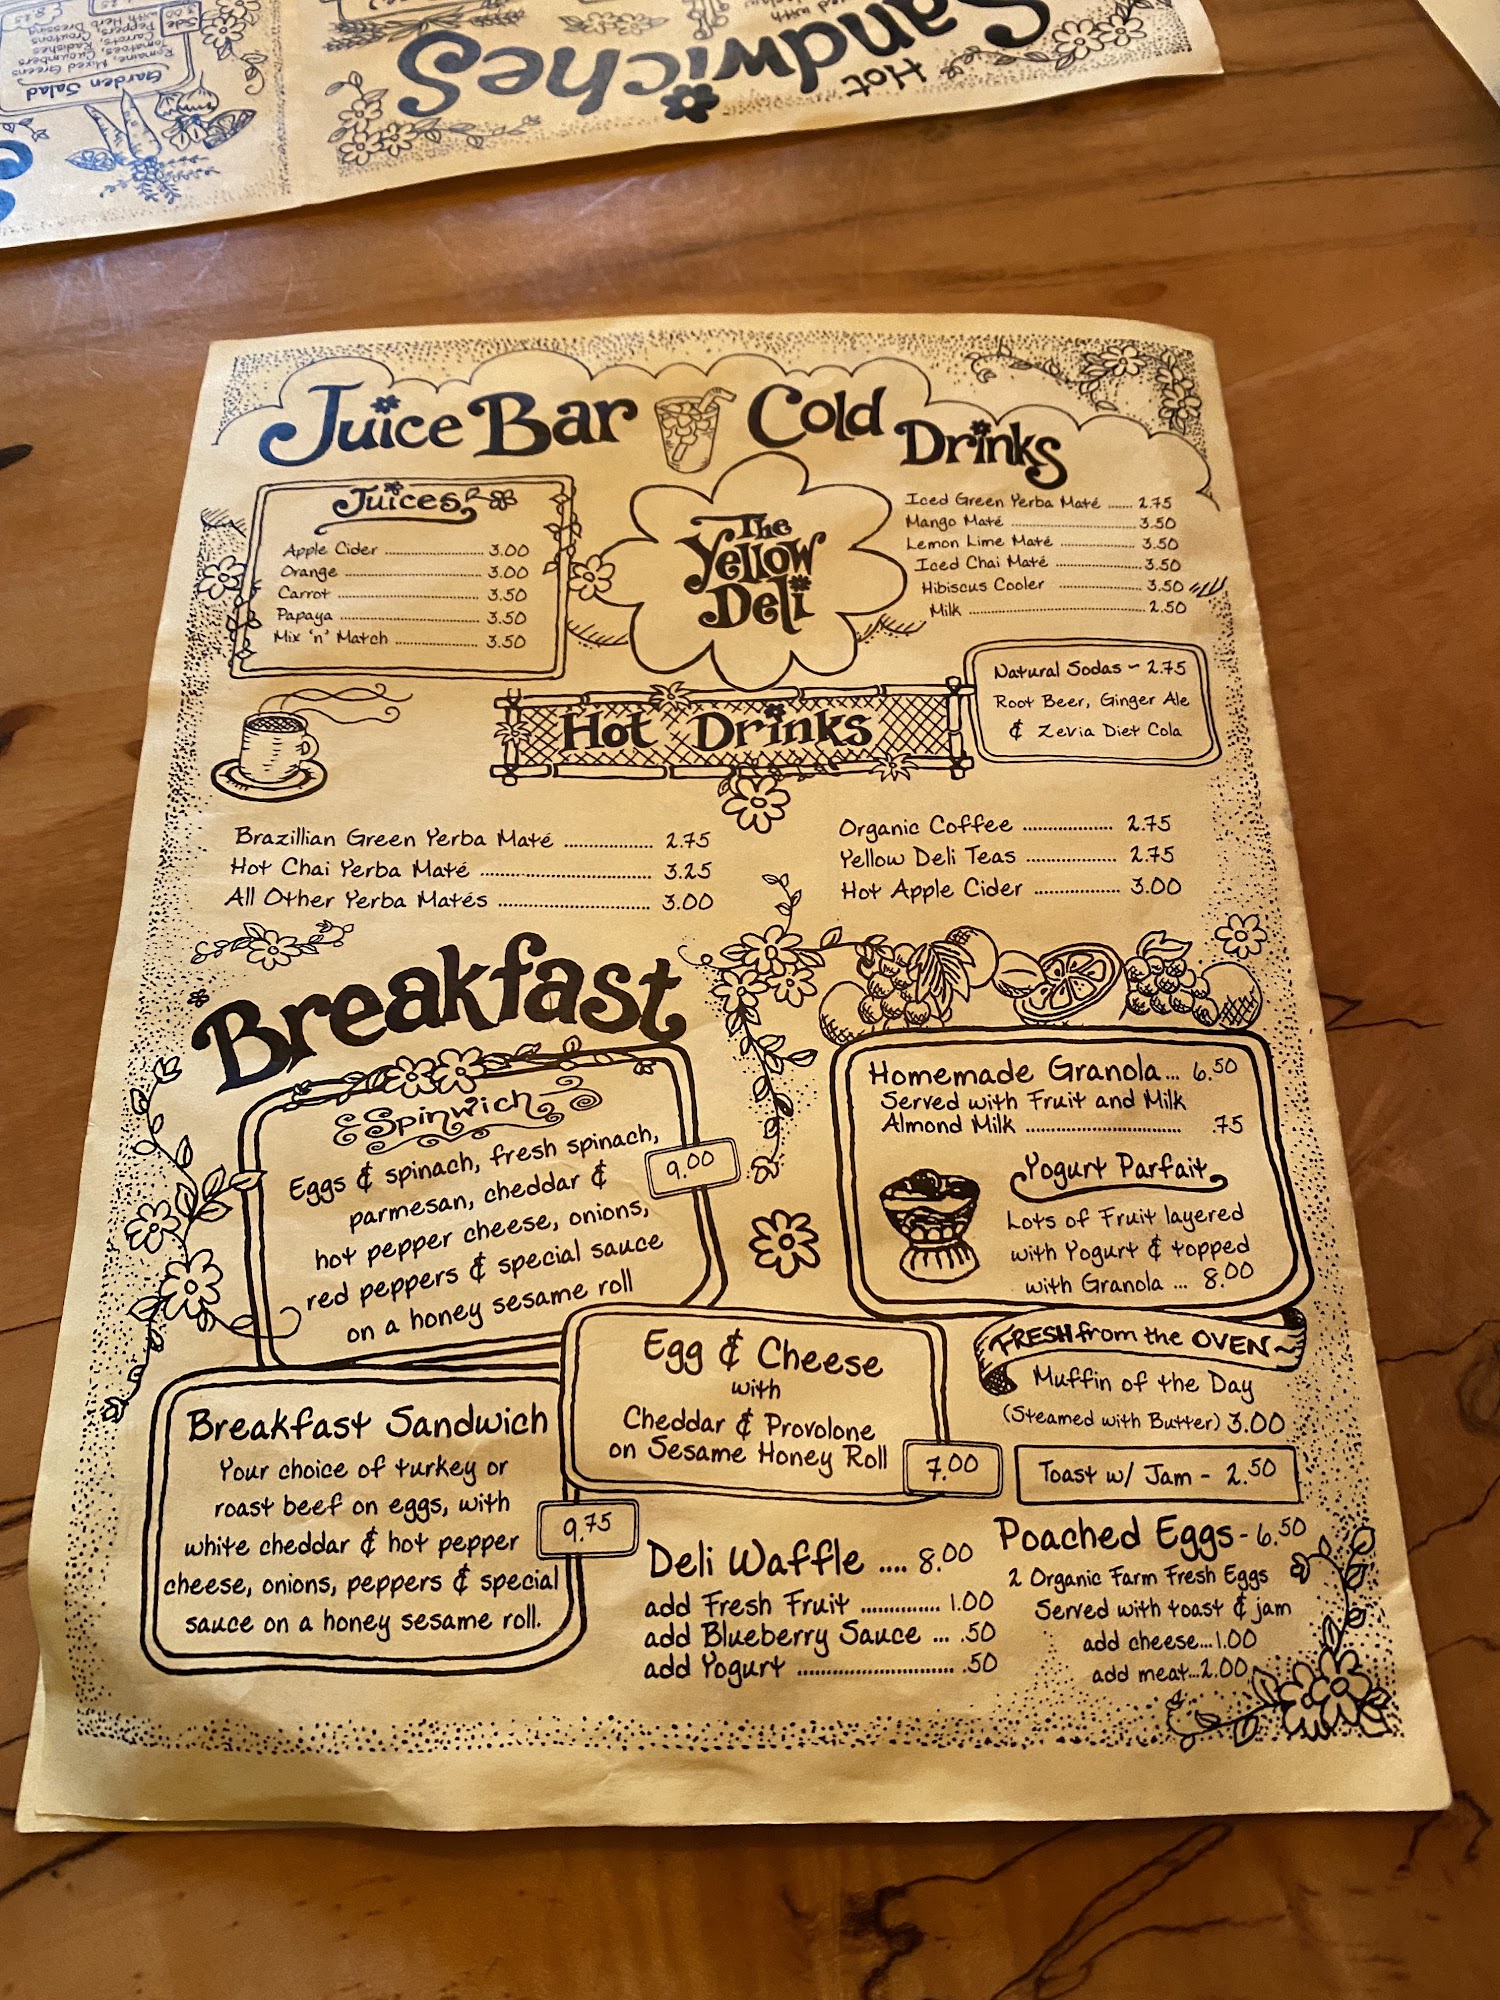 Side
3.00
Garden Salad
Romaine, Mixed Greens
Tomatoes, Cucumbers
Carrots, Radishes
Peppers, Croutons
with Herb Dressing
Hot
Sandwiches
Juice Bar Cold Drinks
Juices
Apple Cider .......... 3.00
Orange .......... 3.00
Carrot .......... 3.50
Papaya .......... 3.50
Mix 'n' Match .......... 3.50
The
Yellow
Deli
Iced Green Yerba Maté ...... 2.75
Mango Maté .......... 3.50
Lemon Lime Maté .......... 3.50
Iced Chai Maté .......... 3.50
Hibiscus Cooler .......... 3.50
Milk .......... 2.50
Natural Sodas ~ 2.75
Root Beer, Ginger Ale
& Zevia Diet Cola
Hot Drinks
Brazillian Green Yerba Maté .......... 2.75
Hot Chai Yerba Maté .......... 3.25
All Other Yerba Matés .......... 3.00
Organic Coffee .......... 2.75
Yellow Deli Teas .......... 2.75
Hot Apple Cider .......... 3.00
Breakfast
Spinwich
Eggs & spinach, fresh spinach,
parmesan, cheddar &
hot pepper cheese, onions,
red peppers & special sauce
on a honey sesame roll
9.00
Homemade Granola... 6.50
Served with Fruit and Milk
Almond Milk .......... .75
Yogurt Parfait
Lots of Fruit layered
with Yogurt & topped
with Granola ... 8.00
Egg & Cheese
with
Cheddar & Provolone
on Sesame Honey Roll
7.00
FRESH from the OVEN~
Muffin of the Day
(Steamed with Butter) 3.00
Toast w/ Jam - 2.50
Breakfast Sandwich
Your choice of turkey or
roast beef on eggs, with
white cheddar & hot pepper
cheese, onions, peppers & special
sauce on a honey sesame roll.
9.75
Deli Waffle .... 8.00
add Fresh Fruit .......... 1.00
add Blueberry Sauce ... .50
add Yogurt .......... .50
Poached Eggs - 6.50
2 Organic Farm Fresh Eggs
Served with toast & jam
add cheese...1.00
add meat...2.00